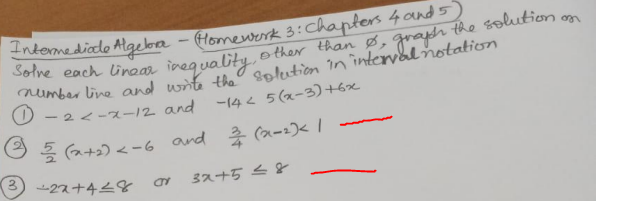 Intermediate Algebra - (Homework 3: Chapters 4 and 5)
Solve each linear inequality, other than ∅, graph the solution on
number line and write the solution in interval notation
① - 2 < -x-12 and -14 < 5(x-3)+6x
② 5/2 (x+2) < -6 and 3/4 (x-2) < 1
③ -2x+4 ≤ 8 or 3x+5 ≤ 8